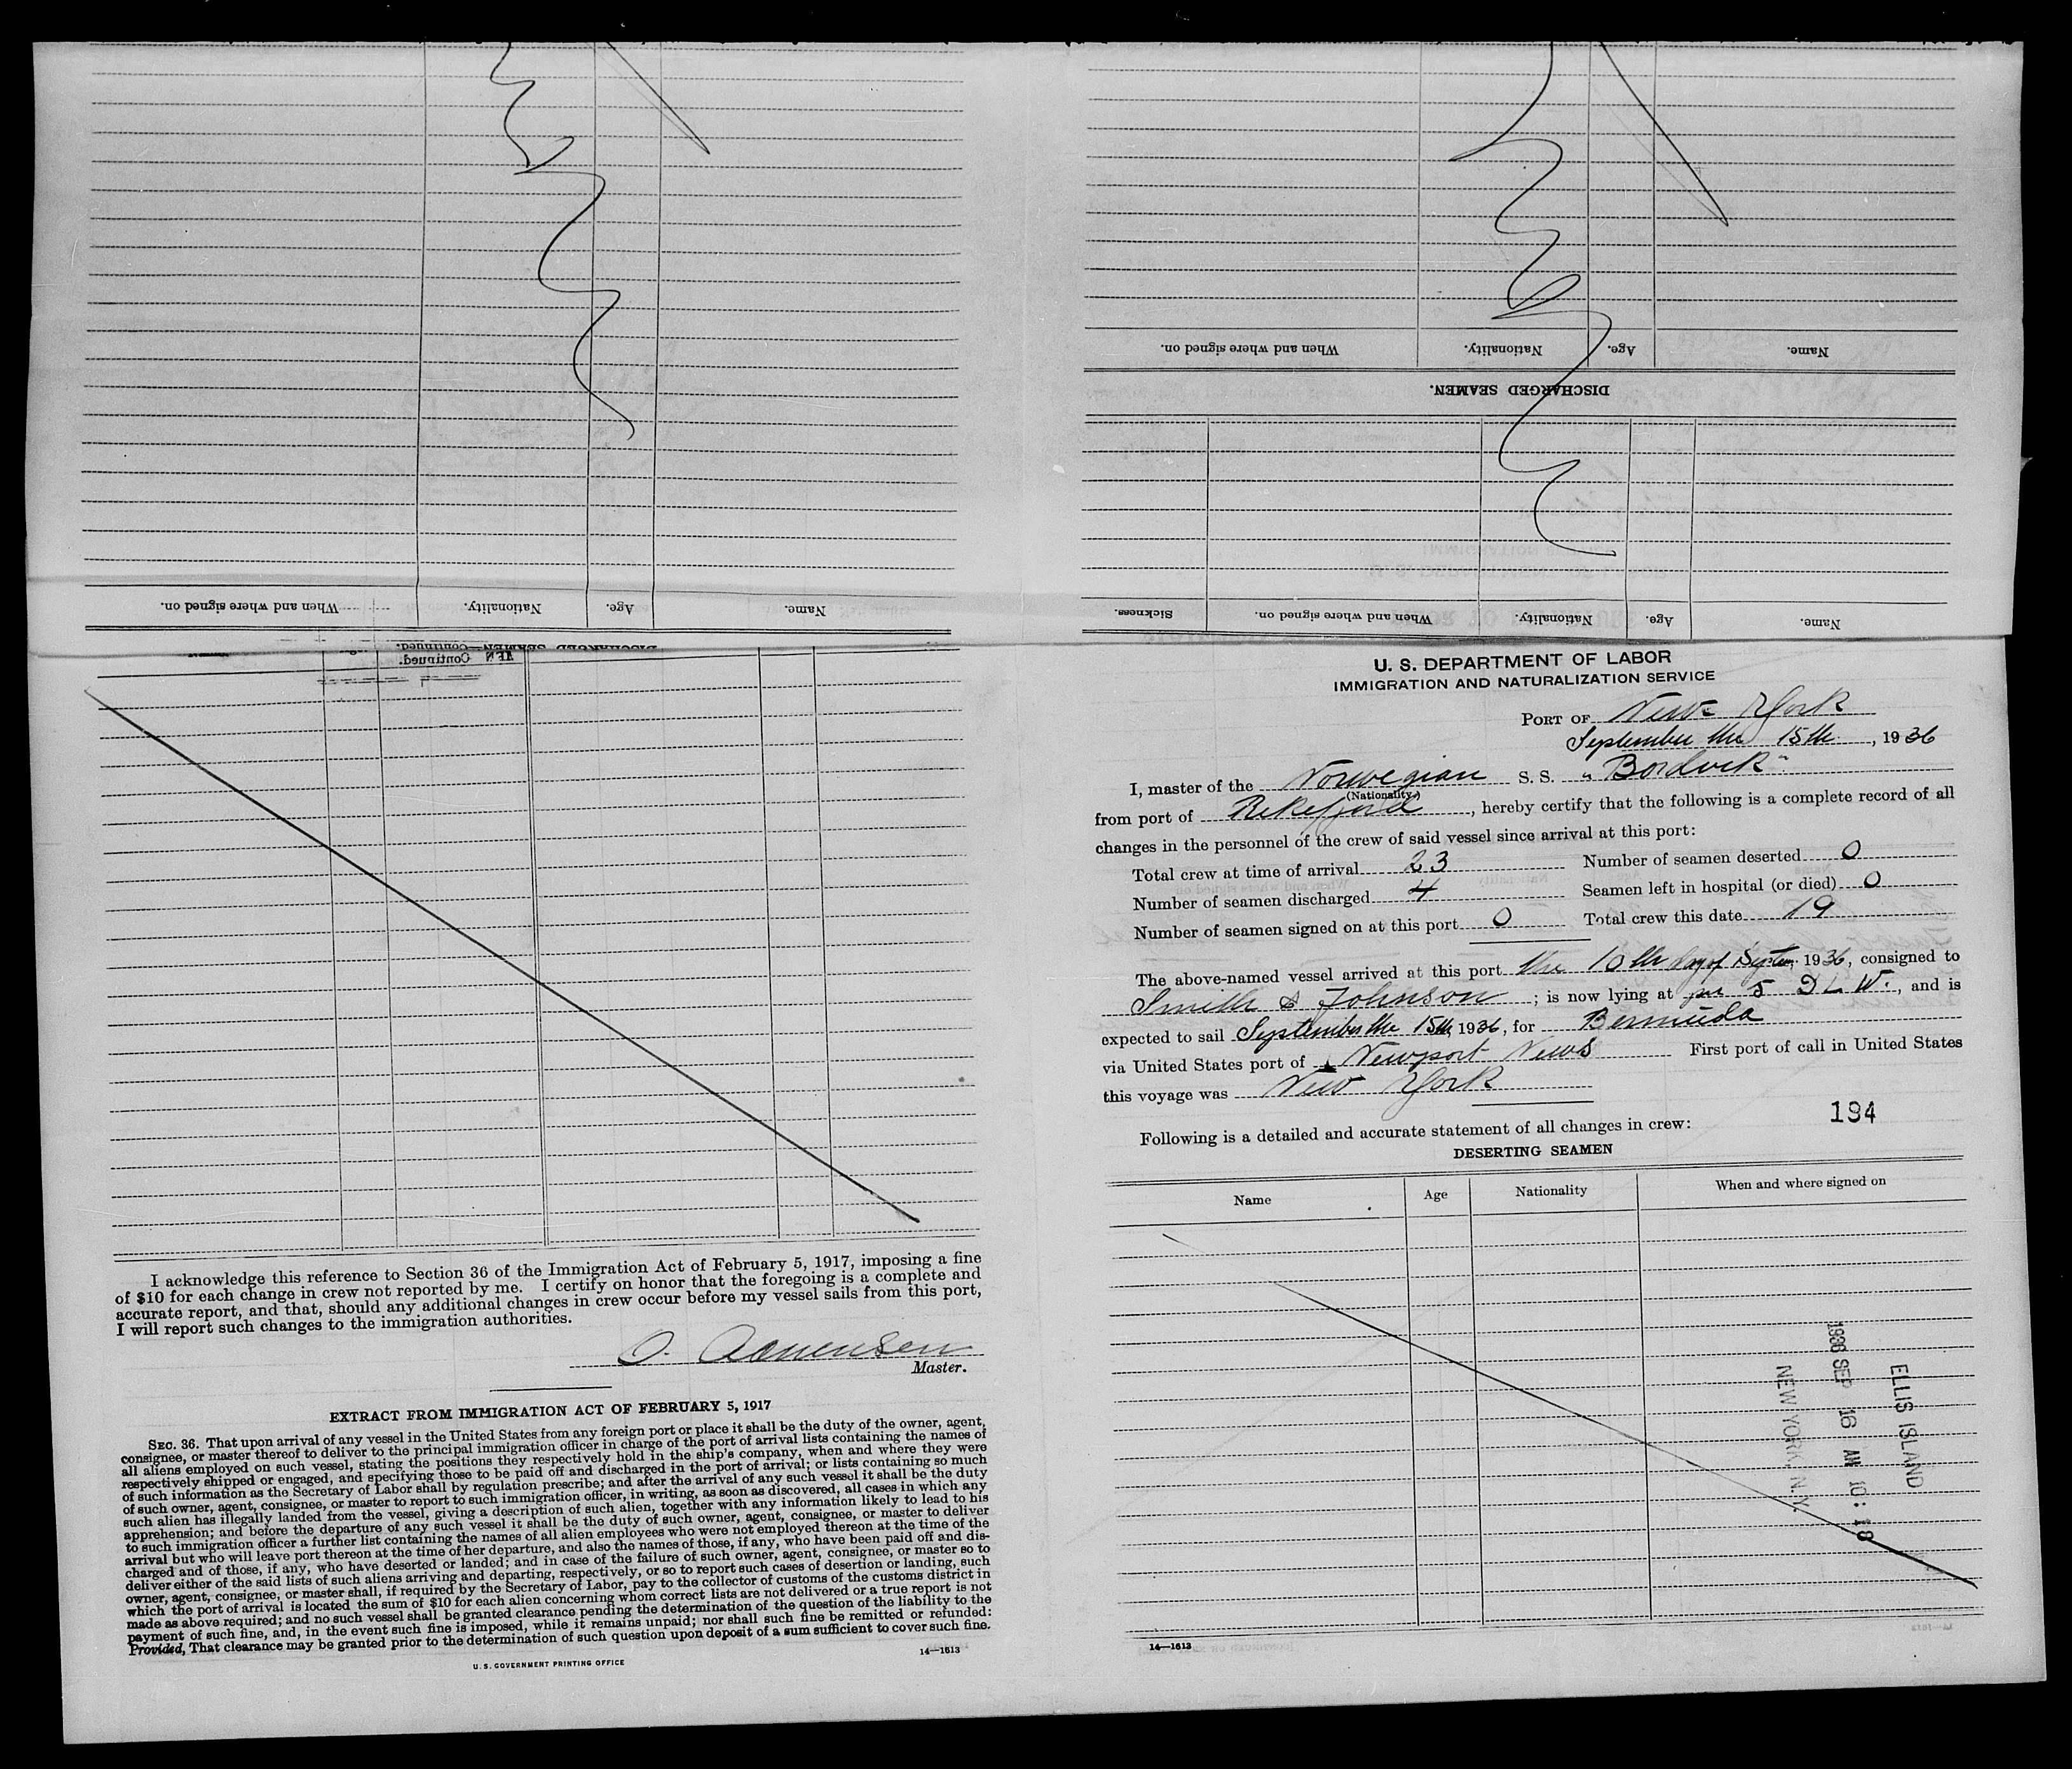 When and where signed on.
Nationality.
Age.
Name.
When and where signed on.
Nationality.
Age.
Name.
DISCHARGED SEAMEN.
Sickness.
When and where signed on.
Nationality.
Age.
Name.
DISCHARGED SEAMEN—Continued.
MEN Continued.
I acknowledge this reference to Section 36 of the Immigration Act of February 5, 1917, imposing a fine
of $10 for each change in crew not reported by me. I certify on honor that the foregoing is a complete and
accurate report, and that, should any additional changes in crew occur before my vessel sails from this port,
I will report such changes to the immigration authorities.
O.
Master.
EXTRACT FROM IMMIGRATION ACT OF FEBRUARY 5, 1917
SEC. 36. That upon arrival of any vessel in the United States from any foreign port or place it shall be the duty of the owner, agent,
consignee, or master thereof to deliver to the principal immigration officer in charge of the port of arrival lists containing the names of
all aliens employed on such vessel, stating the positions they respectively hold in the ship's company, when and where they were
respectively shipped or engaged, and specifying those to be paid off and discharged in the port of arrival; or lists containing so much
of such information as the Secretary of Labor shall by regulation prescribe; and after the arrival of any such vessel it shall be the duty
of such owner, agent, consignee, or master to report to such immigration officer, in writing, as soon as discovered, all cases in which any
such alien has illegally landed from the vessel, giving a description of such alien, together with any information likely to lead to his
apprehension; and before the departure of any such vessel it shall be the duty of such owner, agent, consignee, or master to deliver
to such immigration officer a further list containing the names of all alien employees who were not employed thereon at the time of the
arrival but who will leave port thereon at the time of her departure, and also the names of those, if any, who have been paid off and dis-
charged and of those, if any, who have deserted or landed; and in case of the failure of such owner, agent, consignee, or master so to
deliver either of the said lists of such aliens arriving and departing, respectively, or so to report such cases of desertion or landing, such
owner, agent, consignee, or master shall, if required by the Secretary of Labor, pay to the collector of customs of the customs district in
which the port of arrival is located the sum of $10 for each alien concerning whom correct lists are not delivered or a true report is not
made as above required; and no such vessel shall be granted clearance pending the determination of the question of the liability to the
payment of such fine, and, in the event such fine is imposed, while it remains unpaid; nor shall such fine be remitted or refunded:
Provided, That clearance may be granted prior to the determination of such question upon deposit of a sum sufficient to cover such fine.
14—1613
U. S. GOVERNMENT PRINTING OFFICE
U. S. DEPARTMENT OF LABOR
IMMIGRATION AND NATURALIZATION SERVICE
PORT OF New York
September the 15th, 1936
I, master of the Norwegian S. S. "Bordvik"
(Nationality)
from port of, hereby certify that the following is a complete record of all
changes in the personnel of the crew of said vessel since arrival at this port:
Total crew at time of arrival 23 Number of seamen deserted 0
Number of seamen discharged 4 Seamen left in hospital (or died) 0
Number of seamen signed on at this port 0 Total crew this date 19
The above-named vessel arrived at this port the 10th day of Septem 1936, consigned to
Smith & Johnson; is now lying at 5 D L W., and is
expected to sail September the 15th, 1936, for Bermuda
via United States port of Newport News First port of call in United States
this voyage was New York
194
Following is a detailed and accurate statement of all changes in crew:
DESERTING SEAMEN
Name Age Nationality When and where signed on
ELLIS ISLAND
1936 SEP 16 AM 10:18
NEW YORK, N.Y.
14—1613